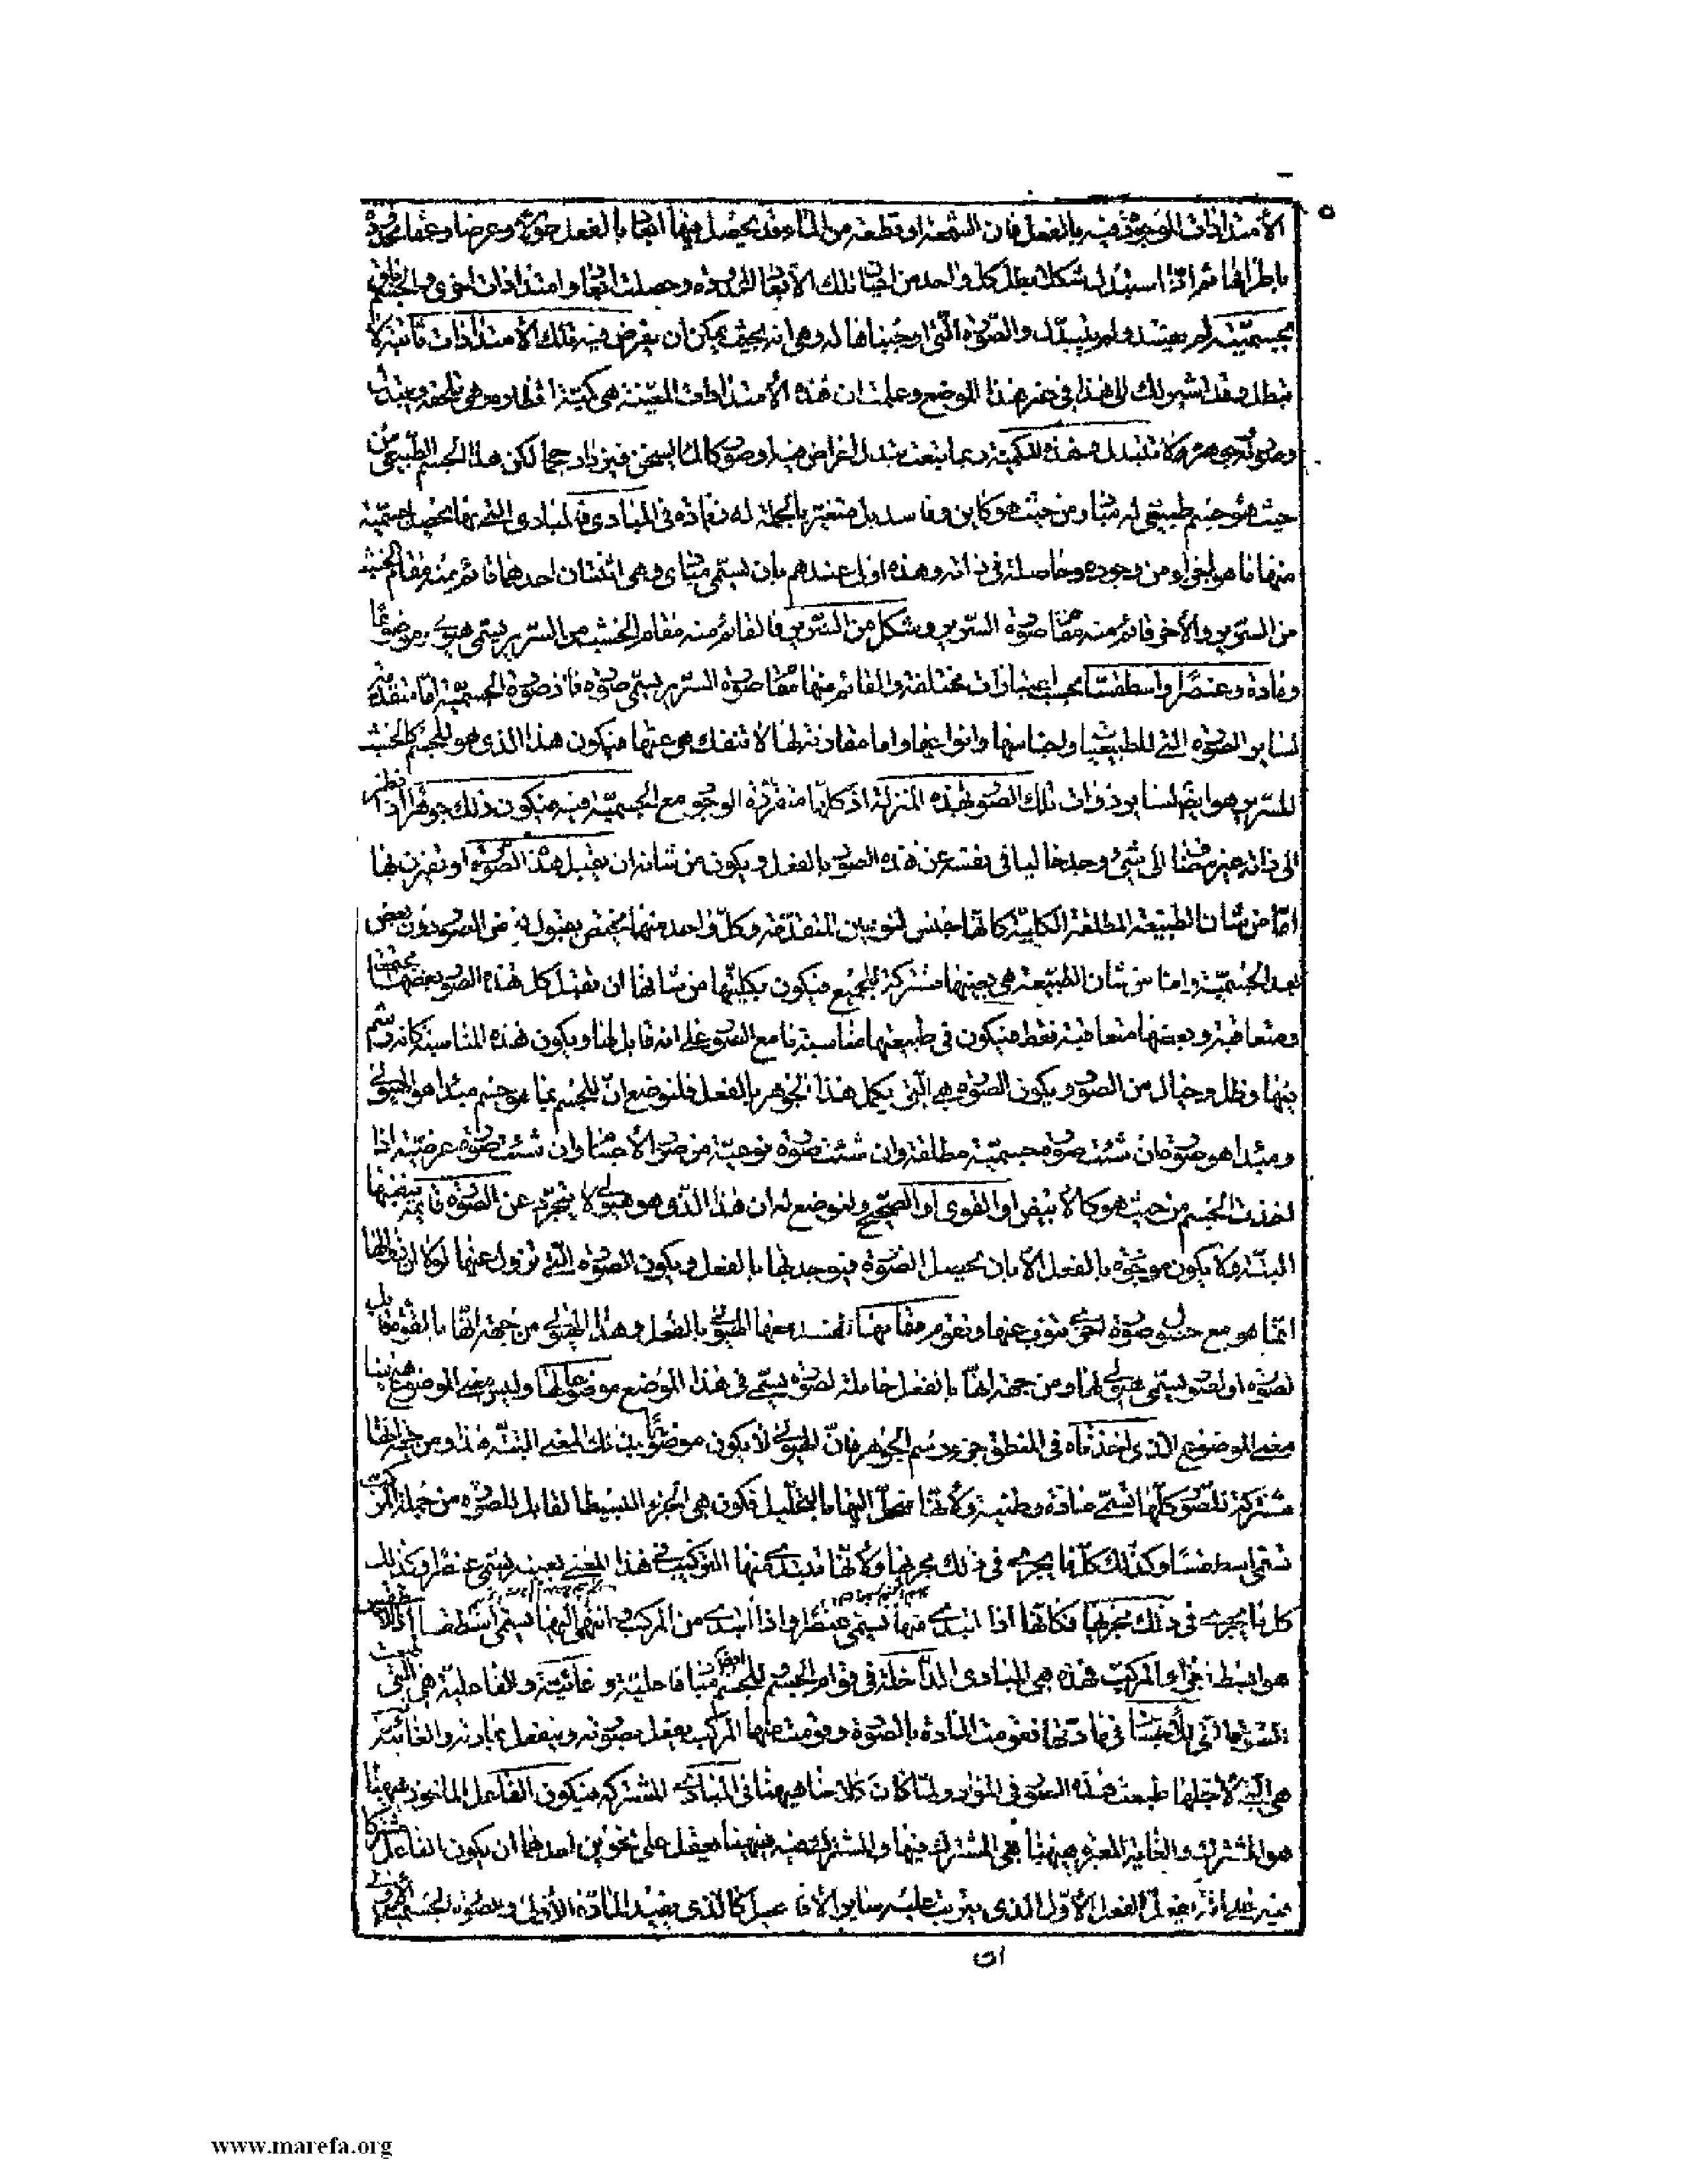 ٥
الأمتدادات الموجودة فيه بالفعل فان الشمعة او قطعة من الماء قد يحصل فيها ابعاد بالفعل طولا وعرضا وعمقا محدودة
باطرافها ثم اذا استبدل شكلا بطل كل واحد من اعيان تلك الابعاد المحدودة وحصلت ابعاد وامتدادات اخرى والجسم باق
بجسميته لم يفسد ولم يتبدل والصورة التى اوجبناها له وهى انه بحيث يمكن ان يفرض فيه تلك الأمتدادات ثابتة لا
تبطل وقد اشير لك الى هذا فى غير هذا الموضع وعلمت ان هذه الأمتدادات المعينة هى كمية اقطاره وهى تلحقه وتتبدل
وصورته وجوهره لا تتبدل وهذه الكمية ربما تبعت تبدل اعراض فيه او صورة كالماء يسخن فيزداد حجما لكن هذا الجسم الطبيعى من
حيث هو جسم طبيعى له مباد ومن حيث هو كاين وفاسد بل متغير بالجملة له زيادة فى المبادى فالمبادى التى بها يحصل جسميته
منها ما هو اجزاء من وجوده وحاصلة فى ذاته وهذه اولى عندهم بان تسمى مبادى وهى اثنتان احدهما قائم منه مقام الخشب
من السرير والأخر قائم منه مقام صورة السرير وشكل من السرير فالقائم منه مقام الخشب من السرير يسمى هيولى وموضوعا
ومادة وعنصرا واسطقسا بحسب اعتبارات مختلفة والقائم منها مقام صورة السرير يسمى صورة فاذ صورة الجسمية اما متقدمة
لساير الصورة التى للطبيعيات واجناسها وانواعها واما مقارنة لها لا تنفك هى عنها فيكون هذا الذى هو للجسم كالخشب
للسرير هو ايضا لساير ذوات تلك الصور لهذه المنزلة اذ كلها متقررة الوجود مع الجسمية فيه فيكون ذلك جوهرا اذا نظر
الى ذاته غير مضاف الى شئ وجد خاليا فى نفسه عن هذه الصور بالفعل ويكون من شانه ان يقبل هذه الصورة او يقترن بها
اما من شان طبيعته المطلقة الكلية كانها جنس لنوعين للمتقدمة وكل واحد منهما يختص بقبول بعض الصور دون بعض
بعد الجسمية واما من شان الطبيعة هى بعينها مشتركة للجميع فيكون بكليتها من شانها ان تقبل كل هذه الصور بعضها مجتمعة
ومتعاقبة وبعضها متعاقبة فقط فيكون فى طبيعتها مناسبة ما مع الصور على انه قابل لها ويكون هذه المناسبة كانه رسم
فيها وظل وخيال من الصورة ويكون الصورة هى التى يكمل هذا الجوهر بالفعل فلنوضع ان للجسم بما هو جسم مبدا هو الهيولى
ومبدا هو صورة فان شئت صورة جسمية مطلقة وان شئت صورة نوعية من صور الأجسام وان شئت صورة عرضية اذا
اخذت الجسم من حيث هو كالأبيض او القوى او الصحيح ولنوضع له ان هذا الذى هو هيولى لا يتجرد عن الصورة قائمة بنفسها
البتة ولا يكون موجودة بالفعل الا بان يحصل الصورة فيوجد بها بالفعل ويكون الصورة التى تزول عنها لولا ان زوالها
انما هو مع حصول صورة اخرى تنوب عنها وتقوم مقامها لفسد معها الهيولى بالفعل وهذا الهيولى من جهة انها بالقوة قابل
لصورة او لصور يسمى هيولى لها ومن جهة انها بالفعل حاملة لصورة يسمى فى هذا الموضع موضوعا لها وليس معنى الموضوع هيهنا
معنى الموضوع الذى اخذناه فى المنطق جزء رسم الجوهر فان الهيولى لا يكون موضوعا بذلك المعنى البتة هذا ومن جهة انها
مشتركة للصور كلها يسمى مادة وطينة ولأنها تنحل اليها بالتحليل فيكون هى الجزء البسيط القابل للصورة من جملة المركب
تسمى اسطقسا وكذلك كل ما يجرى فى ذلك مجريها ولأنها يبتدى منها التركيب فى هذا المعنى بعينه يسمى عنصرا وكذلك
كل ما يجرى فى ذلك مجريها فكانها اذا ابتدى منها يسمى عنصرا واذا ابتدى من المركب وانتهى اليها يسمى اسطقسا اذ الاسطقس
هو ابسط اجزاء المركب فهذه هى المبادى الداخلة فى قوام الجسم وللجسم ايضا مبادى فاعلية وغائية والفاعلية هى التى طبعت
الصور التى للأجسام فى مادتها فقومت المادة بالصورة وقومت منهما المركب يفعل بصورته وينفعل بمادته والغائية
هى التى لأجلها طبعت هذه الصور فى المواد ولما كان كلامنا هيهنا فى المبادى المشتركة فيكون الفاعل الماخوذ هيهنا
هو المشترك والغاية المعتبرة هيهنا هى المشترك فيها والمشترك فيه هيهنا يعقل على نحوين احدهما ان يكون الفاعل مشتركا
فيه على انه يفعل الفعل الأول الذى يترتب عليه ساير الأفاعيل كالذى يفيد المادة الأولى الصورة الجسمية الأولى
ان
www.marefa.org